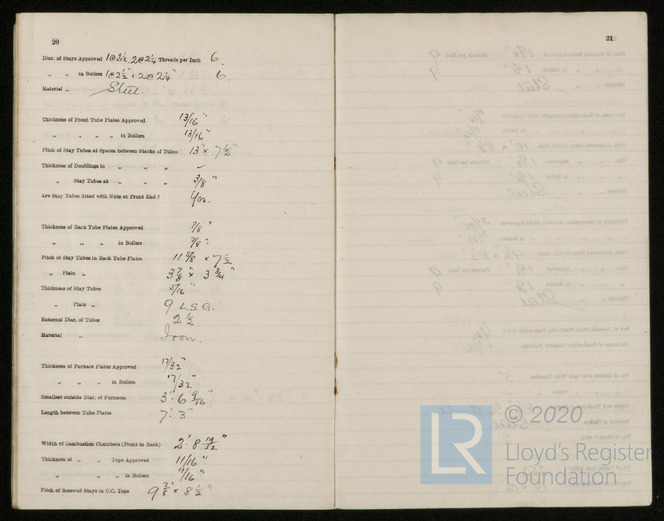 20
Diar. of Stays Approved 1@2½, 2@2¼ Threads per Inch 6.
„ „ in Boilers 1@2½" + 2@2¼" 6.
Material „ Steel.
Thickness of Front Tube Plates Approved 13/16"
„ „ „ „ in Boilers 13/16"
Pitch of Stay Tubes at Spaces between Stacks of Tubes 13" × 7½"
Thickness of Doublings in „ „ „ ✓
„ Stay Tubes at „ „ „ 3/8"
Are Stay Tubes fitted with Nuts at Front End? Yes.
Thickness of Back Tube Plates Approved 7/8"
„ „ „ „ in Boilers 7/8".
Pitch of Stay Tubes in Back Tube Plates 11 × 7½
„ Plain „ 3⅞" × 3¾"
Thickness of Stay Tubes 5/16"
„ Plain „ 9 L.S.G.
External Diar. of Tubes 2½
Material „ Iron.
Thickness of Furnace Plates Approved 17/32"
„ „ „ in Boilers 17/32"
Smallest outside Diar. of Furnaces 3' 6 9/16"
Length between Tube Plates 7' 3"
Width of Combustion Chambers (Front to Back) 2' 8 19/32"
Thickness of „ „ Tops Approved 11/16"
„ „ „ „ in Boilers 11/16"
Pitch of Screwed Stays in C.C. Tops × 8½"
21
LR
© 2020
Lloyd's Register
Foundation